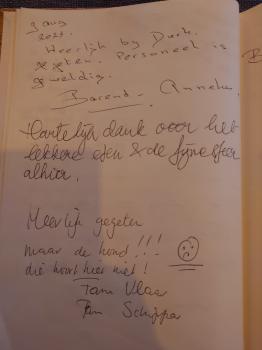 3 aug
2021.
Heerlijk by Durk.
gegeten. Personeel is
geweldig.
Barend - Anneke.
Hartelijk dank voor het
lekkere eten & de fijne sfeer
alhier.
Heerlijk gegeten
maar de hond!!!
die hoort hier niet!
Tam Vlaar
Schipper
B